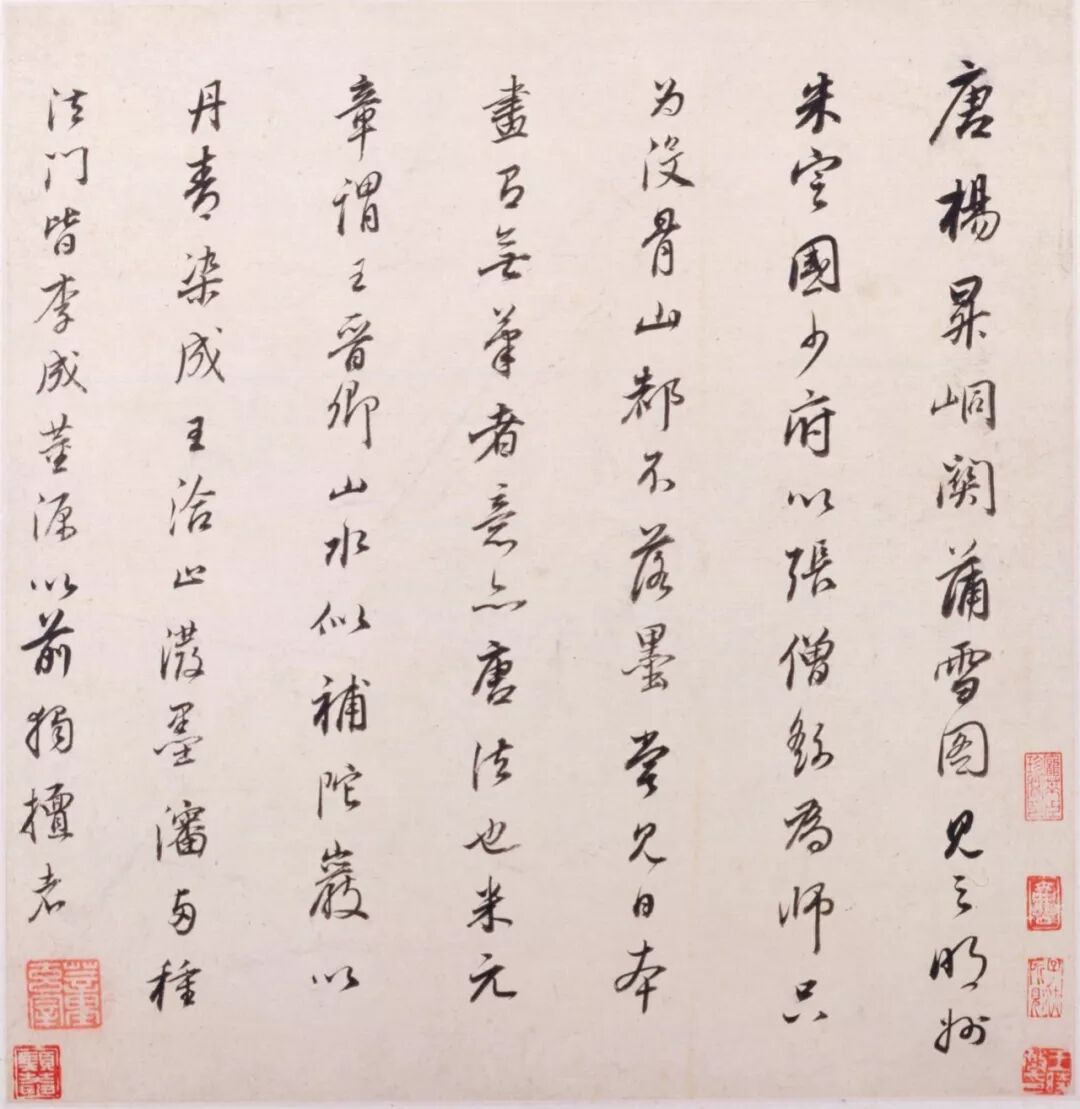 唐楊昇峒關蒲雪图見之明州
朱定國少府以張僧繇為师只
为没骨山都不落墨嘗見日本
畫有無筆者意亦唐法也米元
章謂王晉卿山水似補陀巖以
丹青染成王洽止潑墨瀋两種
法门皆李成董源以前獨擅者